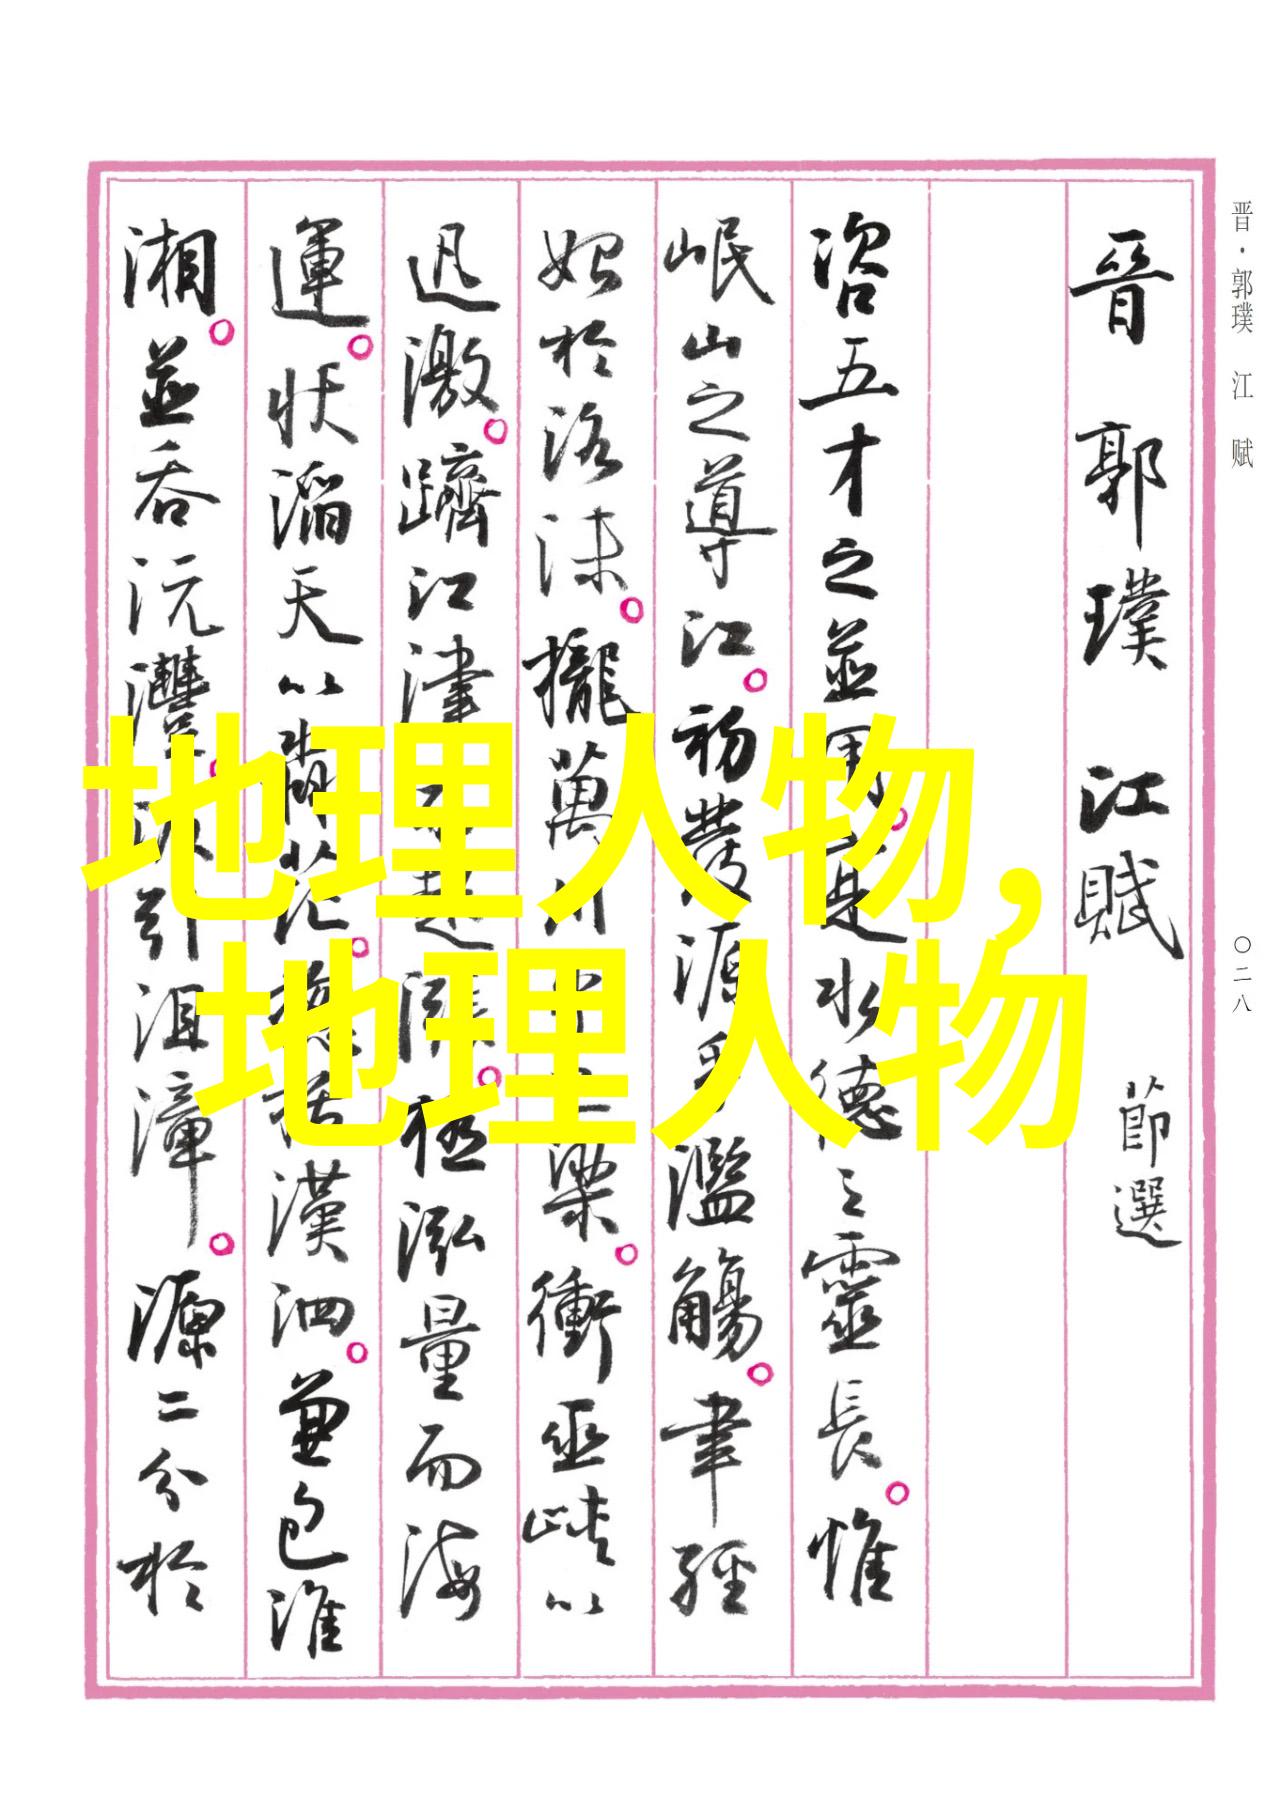 晋·郭璞 江赋
〇二八
晉郭璞江賦 節選
咨五才之並用。寔水德之靈長。惟
岷山之導江。初發源乎濫觴。聿經
始於洛沬。攏萬川乎巴梁。衝巫峽以
迅激。躋江津而起漲。極泓量而海
運。狀滔天以淼茫。總括漢泗。兼包淮
湘。並吞沅澧。汲引沮漳。源二分於
地理人物,
地理人物